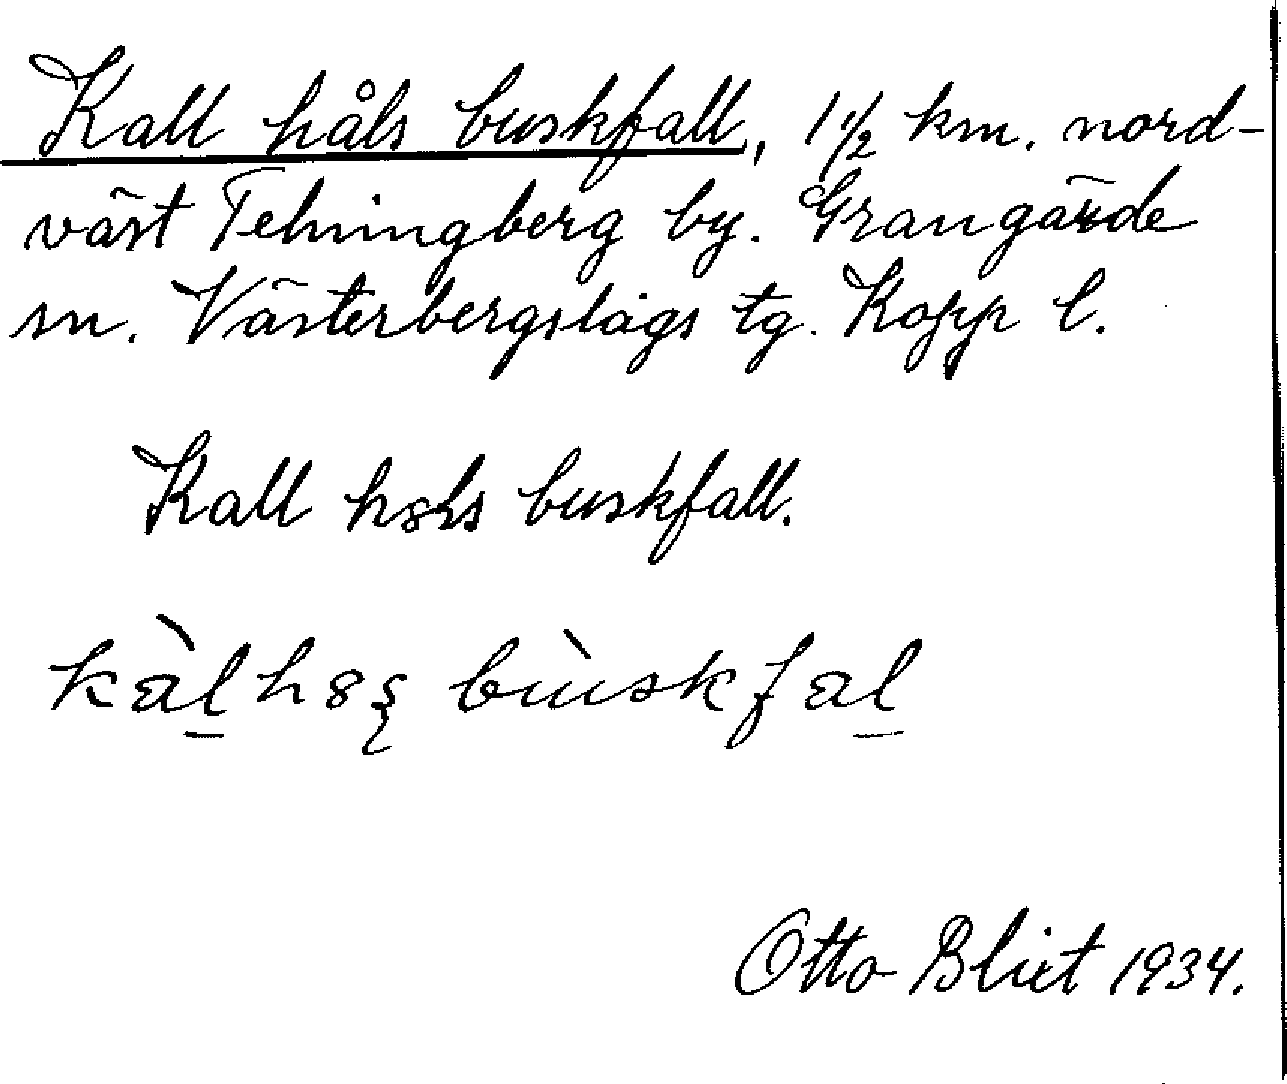 Kall håls buskfall, 1 1/2 km. nord-
väst Telningberg by. Grangärde
sn. Västerbergslags tg. Kopp l.
Kall h8ls buskfall.
kàl̲h8ş bùskfal̲
Otto Blixt 1934.